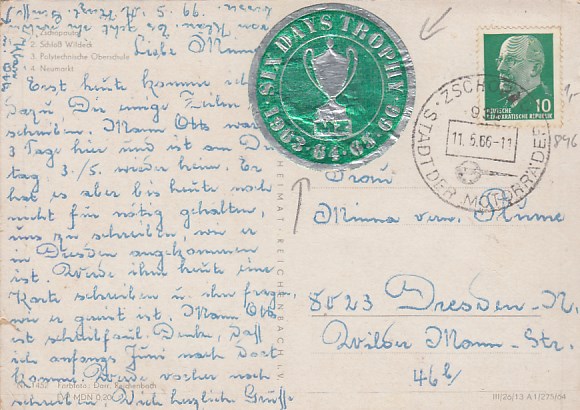 Zschopau
2. Schloß Wildeck
3. Polytechnische Oberschule
4. Neumarkt
10. 5. 66.
Liebe Minna
Erst heute komme ich
dazu Dir einige Zeilen
schreiben. Mann Otts war
3 Tage hier und ist am Diens
tag 3./5 wieder heim. Er
hat es aber bis heute noch
nicht für nötig gehalten,
uns zu schreiben, wie er
in Dresden angekommen
ist. Werde ihm heute eine
Karte schreiben u. ihn fragen
wie er gereist ist. Mann Otts
ist schreibfaul. Denke, daß
ich anfangs Juni nach dort
komme. Werde vorher noch
schreiben. Viele herzliche Grüße
SIX DAYS TROPHY
1963·64·65·66
10
DEUTSCHE
DEMOKRATISCHE REPUBLIK
ZSCHOPAU
11.5.66-11
STADT DER MOTORRÄDER
1,-
896
Frau
Minna verw. Blume
8023 Dresden-N.
Wilder Mann-Str.
46b/
HEIMAT REICHENBACH i. V.
Farbfoto: Darr, Reichenbach
EVP MDN 0,20
III/26/13 A 1/275/64